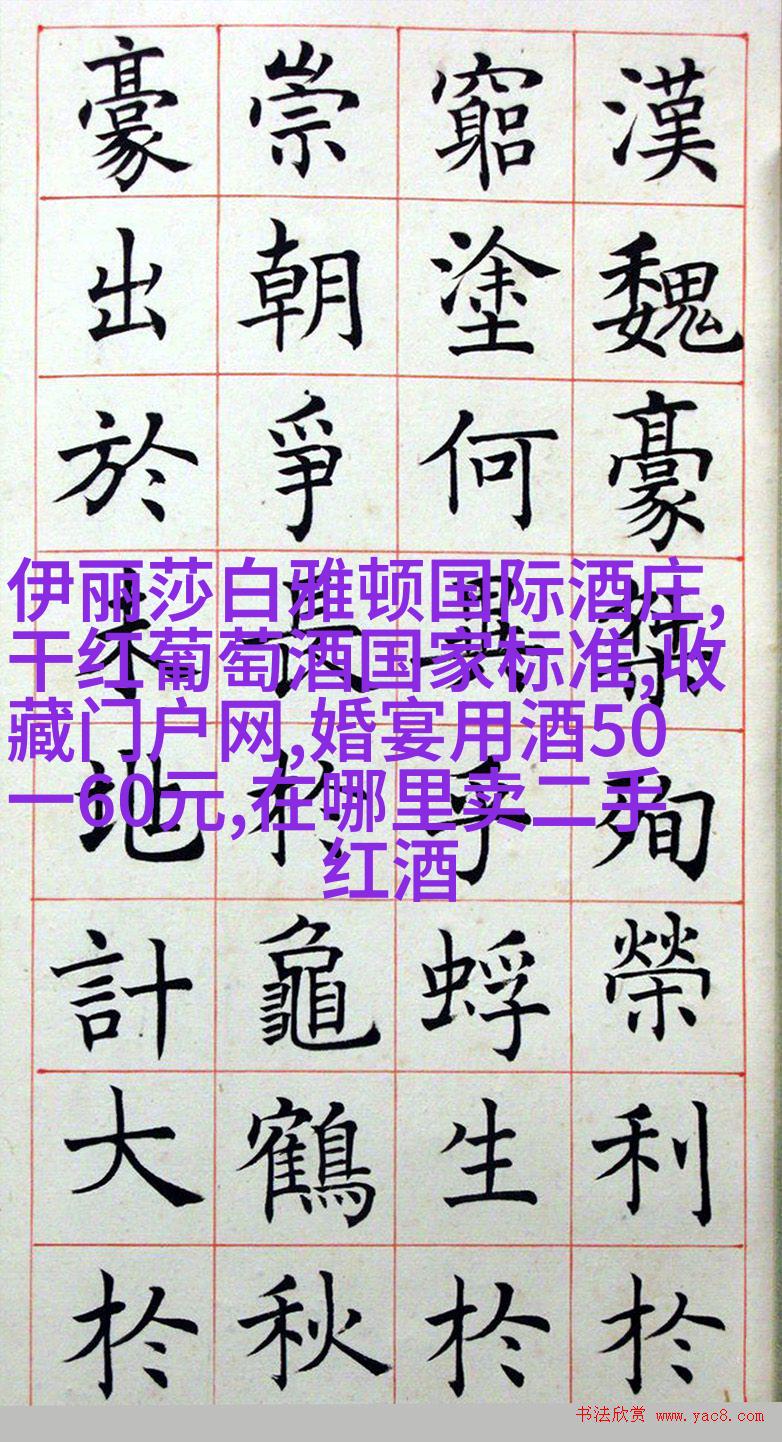 漢魏豪殉榮利扵
窮塗何異乎蜉生扵
崇朝爭長扵龜鶴秋
豪出於地計大扵
伊丽莎白雅顿国际酒庄,
干红葡萄酒国家标准,收
藏门户网,婚宴用酒50
一60元,在哪里卖二手
红酒
书法欣赏 www.yac8.com